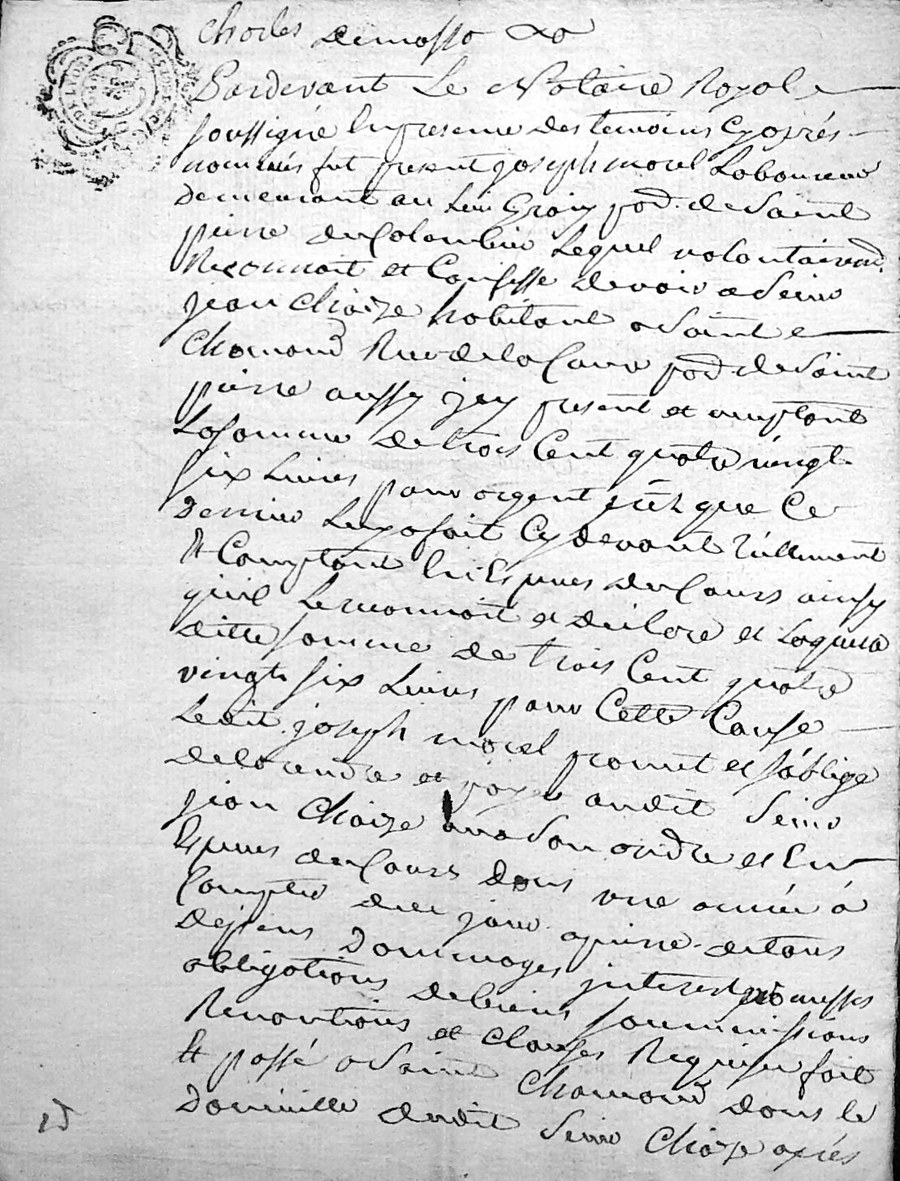 Pardevant Le Notaire Royal
soussigné En presence des temoins Cy aprés
nommés fut present joseph morel Laboureur
demeurant au Lieu Graix pod. de Saint
pierre de Colombier Lequel volontairemt.
Reconnoit et Confesse devoir a Seiur
jean Chaize habitant a Saint
Chamond Rue de la pod. de Saint
pierre aussy jcy present et acceptant
La somme de trois Cent quatre vingt
six Livres pour argent prêt que Ce
dernier Luy a fait Cy devant réellement
et Comptant En Especes de Cours ainsy
quil Le reconnoit et declare et Laquelle
ditte somme de trois Cent quatre
vingt six Livres pour Cette Cause
Ledit joseph morel promet et soblige
de la rendre et payer audit Seiur
jean Chaize ou a son ordre et En
Especes de Cours dans une année à
Compter de ce jour a peine de tous
depens Dommages jnterest promesses
obligations de biens soummissions
Renontiations et Clauses Requises fait
et passé a Saint Chamond dans le
Domicille dudit Seiur Chaize aprés